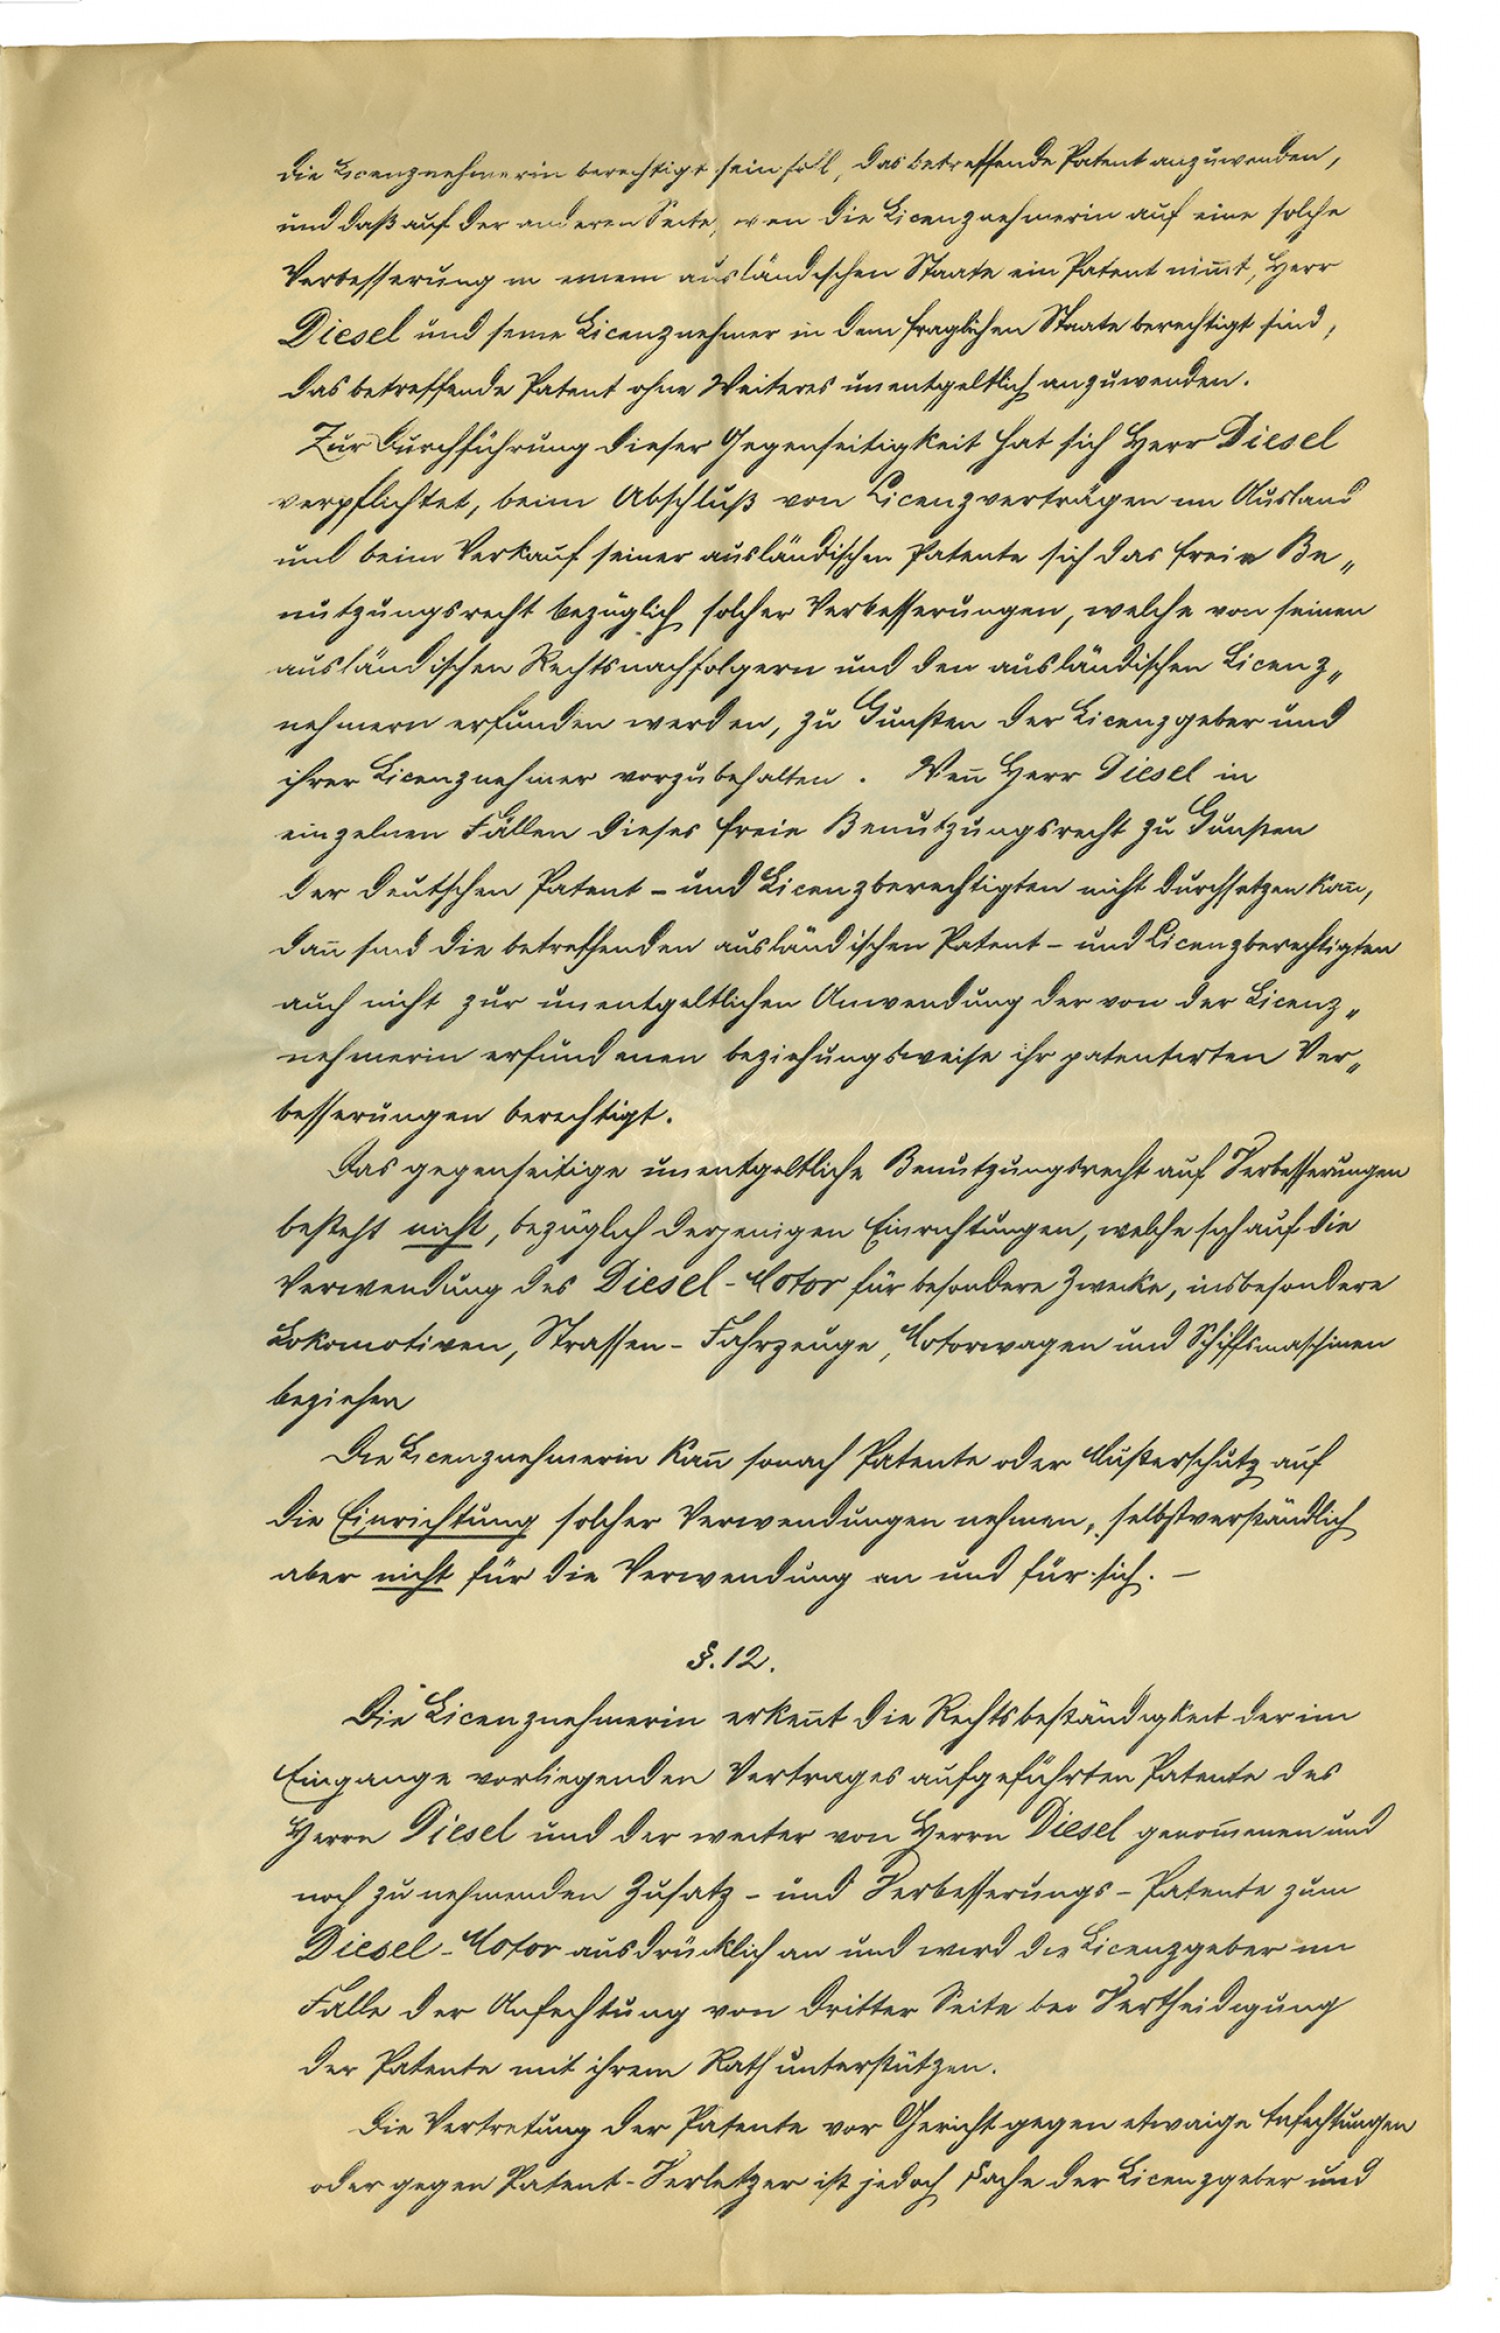 die Licenznehmerin berechtigt sein soll, das betreffende Patent anzuwenden,
und daß auf der anderen Seite, wen die Licenznehmerin auf eine solche
Verbesserung in einem ausländischen Staate ein Patent nim̅t, Herr
Diesel und seine Licenznehmer in dem fraglichen Staate berechtigt sind,
das betreffende Patent ohne Weiteres unentgeltlich anzuwenden.
Zur Durchführung dieser Gegenseitigkeit hat sich Herr Diesel
verpflichtet, beim Abschluß von Licenzverträgen im Ausland
und beim Verkauf seiner ausländischen Patente sich das freie Be„
nutzungsrecht bezüglich solcher Verbesserungen, welche von seinen
ausländischen Rechtsnachfolgern und den ausländischen Licenz„
nehmern erfunden werden, zu Gunsten der Licenzgeber und
ihrer Licenznehmer vorzubehalten. Wen̅ Herr Diesel in
einzelnen Fällen dieses freie Benutzungsrecht zu Gunsten
der deutschen Patent- und Licenzberechtigten nicht durchsetzen kan̅,
dan̅ sind die betreffenden ausländischen Patent- und Licenzberechtigten
auch nicht zur unentgeltlichen Anwendung der von der Licenz„
nehmerin erfundenen beziehungsweise ihr patentirten Ver„
besserungen berechtigt.
Das gegenseitige unentgeltliche Benutzungsrecht auf Verbesserungen
besteht nicht, bezüglich derjenigen Einrichtungen, welche sich auf die
Verwendung des Diesel-Motor für besondere Zwecke, insbesondere
Lokomotiven, Strassen-Fahrzeuge, Motorwagen und Schiffsmaschinen
beziehen
Die Licenznehmerin kan̅ sonach Patente oder Musterschutz auf
die Einrichtung solcher Verwendungen nehmen, selbstverständlich
aber nicht für die Verwendung an und für sich. —
§. 12.
Die Licenznehmerin erken̅t die Rechtsbeständigkeit der im
Eingange vorliegenden Vertrages aufgeführten Patente des
Herrn Diesel und der weiter von Herrn Diesel genom̅enen und
noch zu nehmenden Zusatz- und Verbesserungs-Patente zum
Diesel-Motor ausdrücklich an und wird die Licenzgeber im
Falle der Anfechtung von dritter Seite bei Vertheidigung
der Patente mit ihrem Rath unterstützen.
Die Vertretung der Patente vor Gericht gegen etwaige Anfechtungen
oder gegen Patent-Verletzer ist jedoch Sache der Licenzgeber und